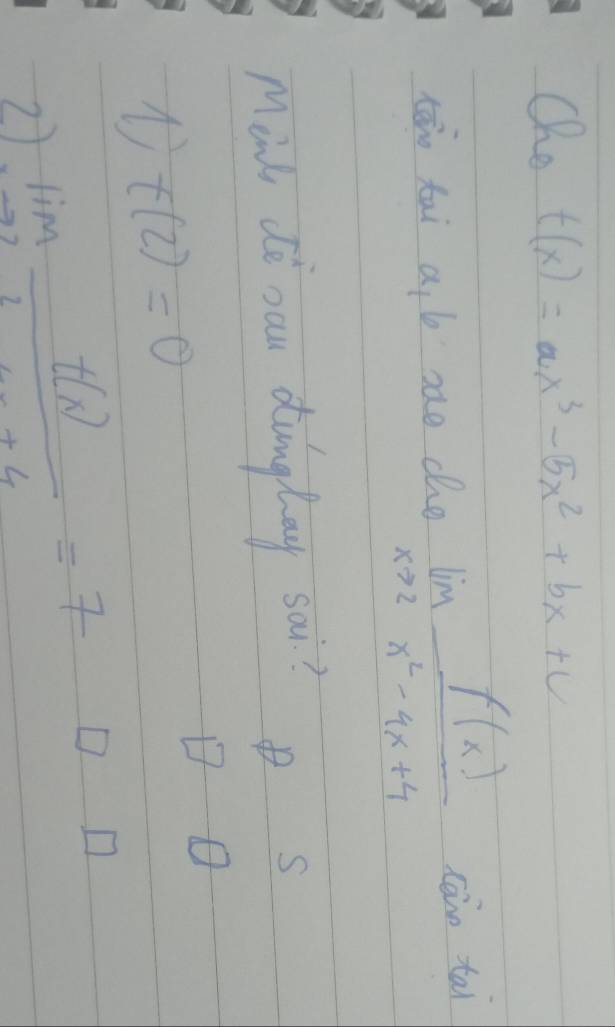 Cho f(x) = ax³ - 5x² + bx +
tồn tại a, b sao cho lim x→2 f(x) / x² - 4x + 4 tồn tại
Mệnh đề sau đúng hay sai? Đ S
1) f(2) = 0 □ □
2) lim x→2 f(x) / x² - 4x + 4 = 7 □ □